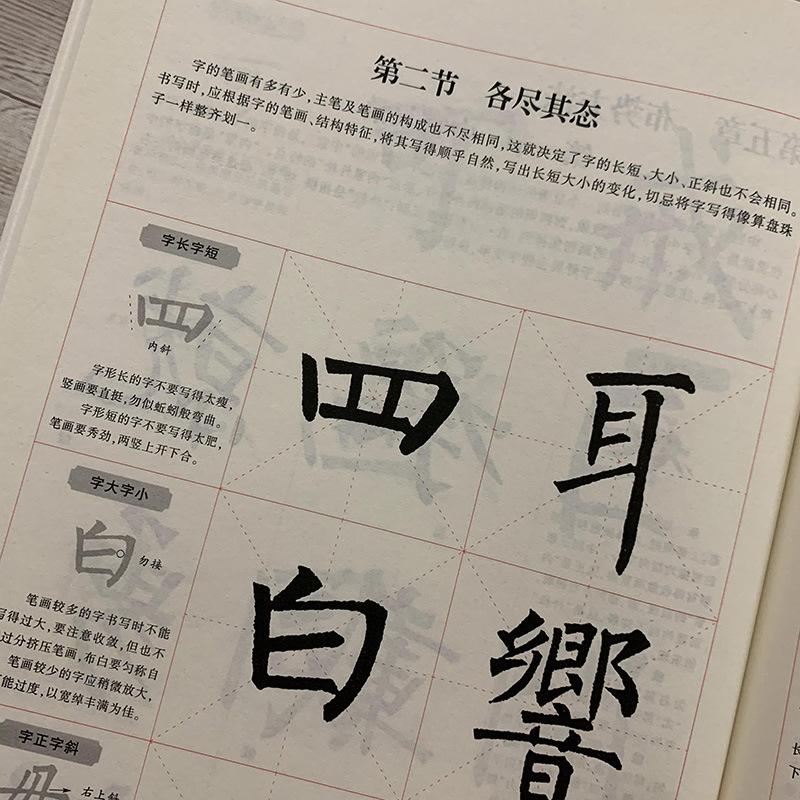 第二节 各尽其态
字的笔画有多有少，主笔及笔画的构成也不尽相同，这就决定了字的长短、大小、正斜也不会相同。
书写时，应根据字的笔画、结构特征，将其写得顺乎自然，写出长短大小的变化，切忌将字写得像算盘珠
子一样整齐划一。
字长字短
四
内斜
字形长的字不要写得太瘦，
竖画要直挺，勿似蚯蚓般弯曲。
字形短的字不要写得太肥，
笔画要秀劲，两竖上开下合。
四 耳
字大字小
白
勿接
笔画较多的字书写时不能
写得过大，要注意收敛，但也不
过分挤压笔画，布白要匀称自
笔画较少的字应稍微放大，
能过度，以宽绰丰满为佳。
白 響
字正字斜
右上斜
长
下